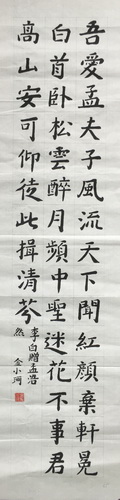 吾愛孟夫子風流天下聞紅顏棄軒冕
白首卧松雲醉月頻中聖迷花不事君
高山安可仰徒此揖清芬
李白贈孟浩
然 金小河